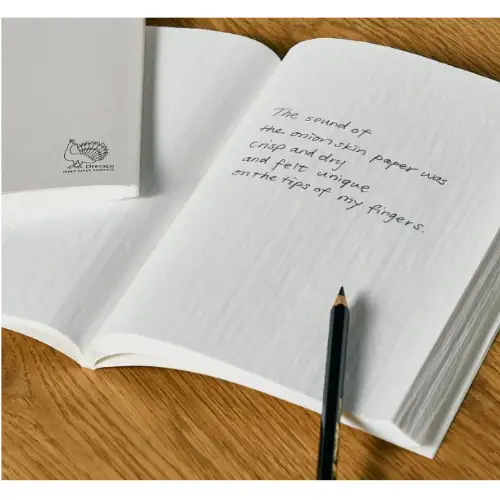 The sound of
the onion skin paper was
crisp and dry
and felt unique
on the tips of my fingers.